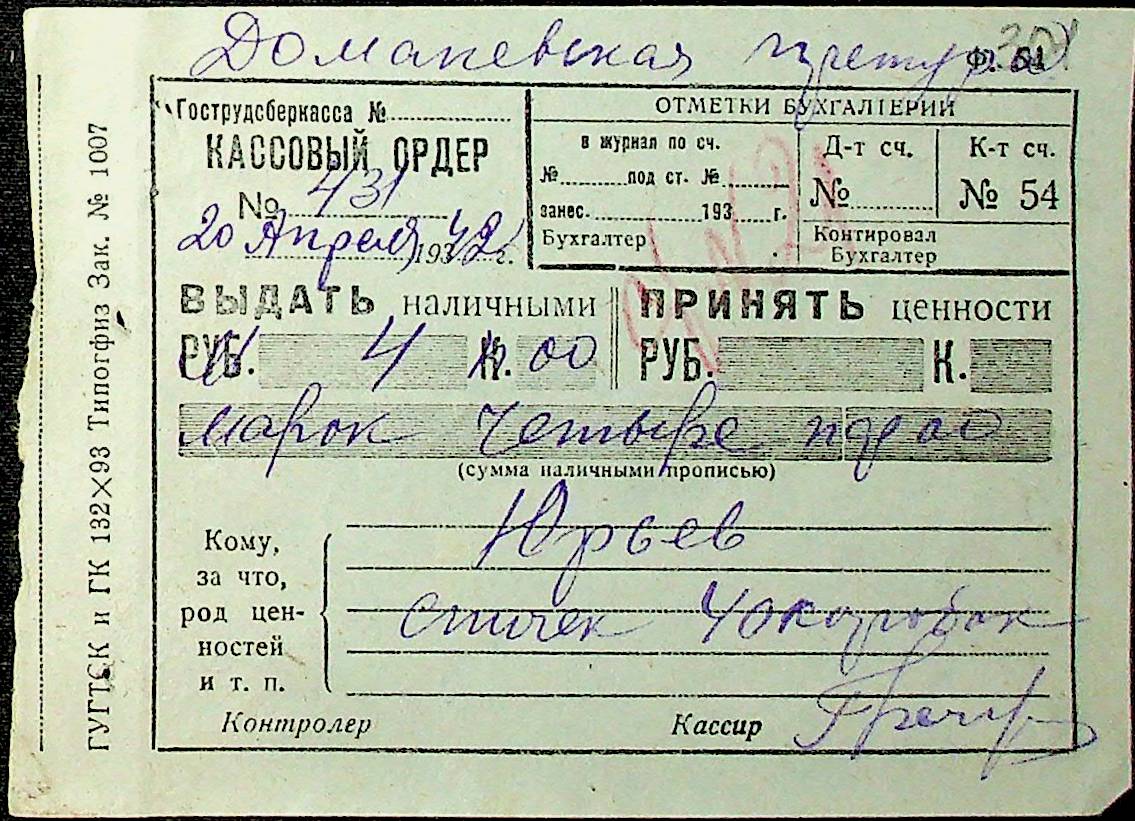 Доманевская претура
Ф. 51
Гострудсберкасса №
КАССОВЫЙ ОРДЕР
№ 431
20 Апреля 1942 г.
ОТМЕТКИ БУХГАЛТЕРИИ
в журнал по сч.
№ под ст. №
занес. 193 г.
Бухгалтер
Д-т сч.
№
К-т сч.
№ 54
Контировал
Бухгалтер
ВЫДАТЬ наличными
РУБ. 4 К. 00
ПРИНЯТЬ ценности
РУБ. К.
марок четыре пф 00
(сумма наличными прописью)
Кому,
за что,
род цен-
ностей
и т. п.
Юрьев
спичек 40 коробок
Контролер
Кассир
ГУГТСК и ГК 132×93 Типогфиз Зак. № 1007